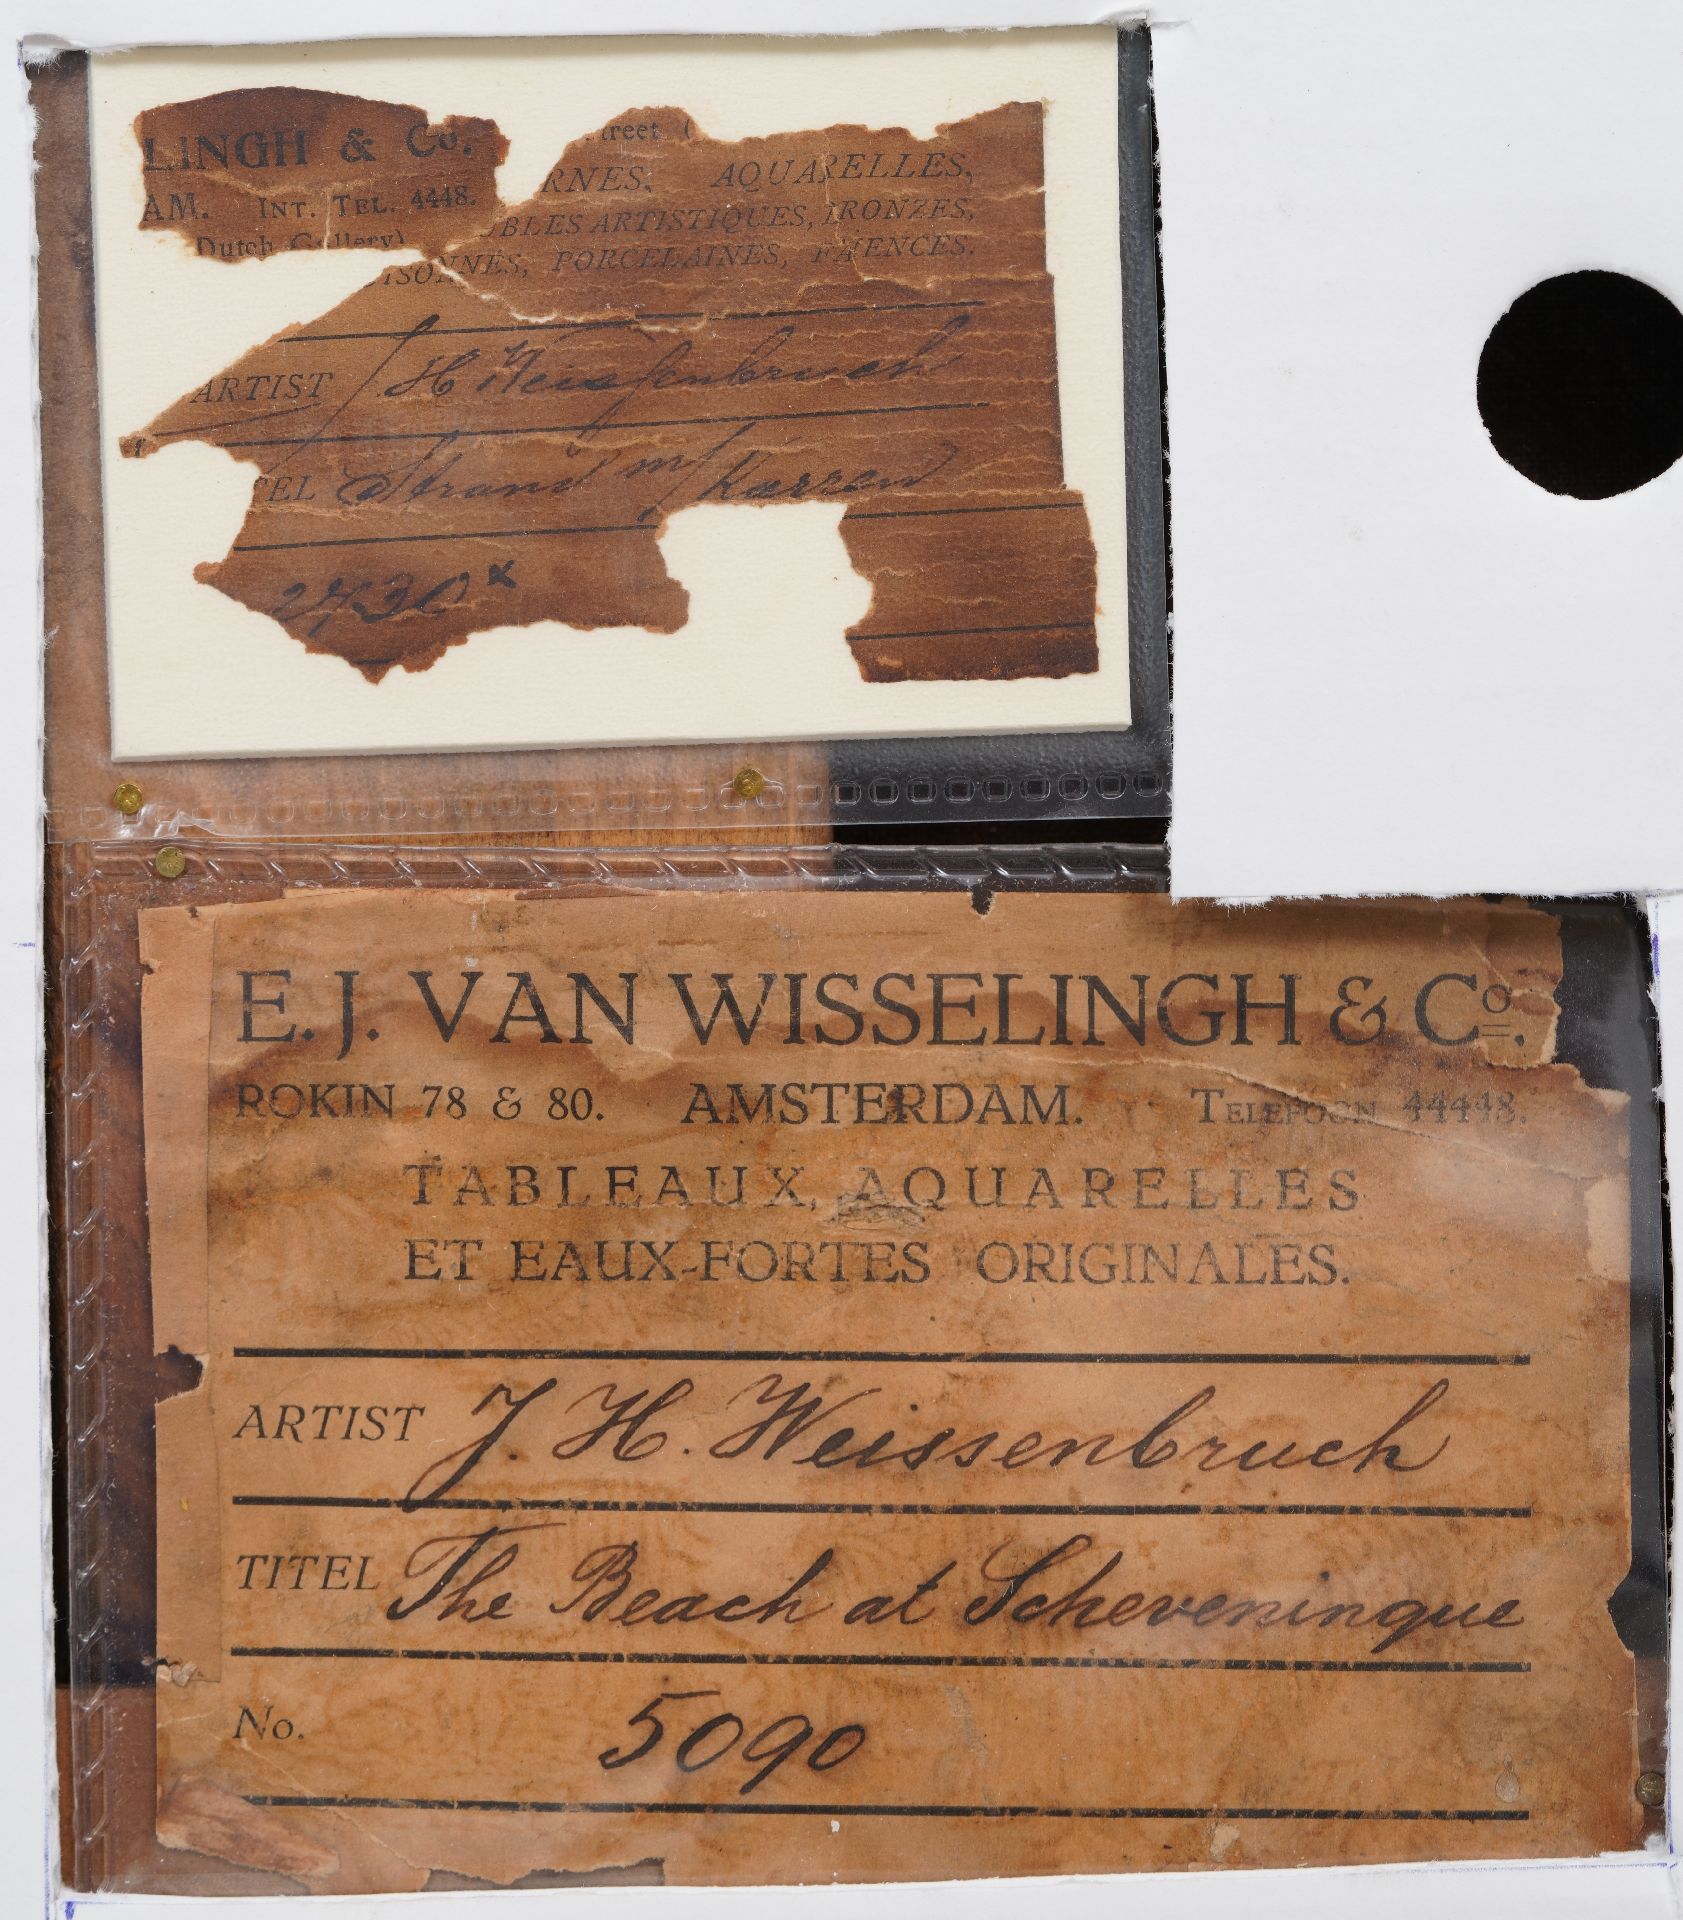 LINGH & Co.
AM. INT. TEL. 4448.
Dutch Gallery)
treet (
RNES, AQUARELLES,
BLES ARTISTIQUES, BRONZES,
ISONNÉS, PORCELAINES, FAÏENCES.
ARTIST J H Weissenbruch
TEL Strand m/ Karren
2730 x
E. J. VAN WISSELINGH & Co.
ROKIN 78 & 80. AMSTERDAM. TELEFOON 44448.
TABLEAUX, AQUARELLES
ET EAUX-FORTES ORIGINALES.
ARTIST J. H. Weissenbruch
TITEL The Beach at Scheveningue
No. 5090